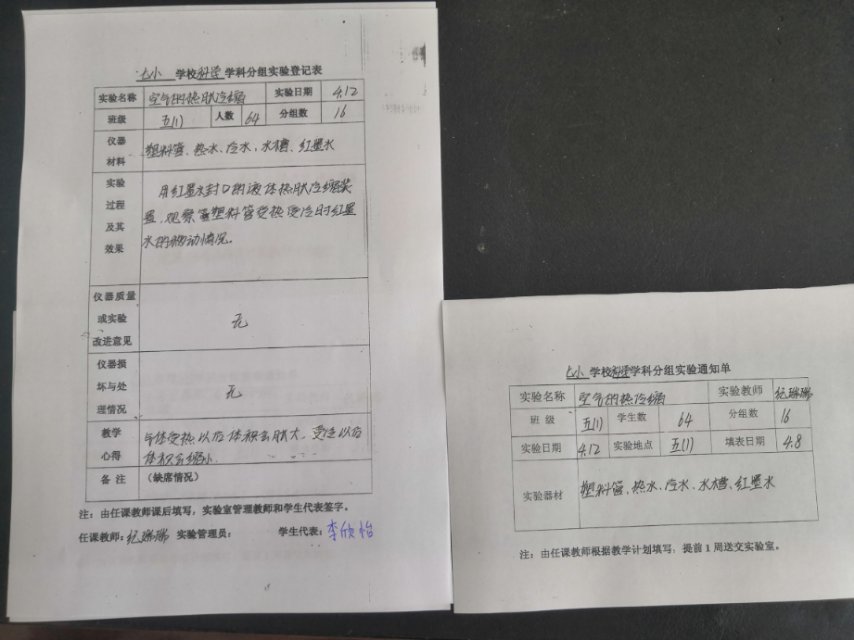 七小 学校科学学科分组实验登记表
实验名称 空气的热胀冷缩 实验日期 4.12
班级 五(1) 人数 64 分组数 16
仪器材料 塑料管、热水、冷水、水槽、红墨水
实验过程及其效果
用红墨水封口的液体热胀冷缩装
置,观察塑料管受热受冷时红墨
水的移动情况。
仪器质量或实验改进意见 无
仪器损坏与处理情况 无
教学心得 气体受热以后体积会胀大,受冷以后
体积会缩小.
备注 (缺席情况)
注:由任课教师课后填写;实验室管理教师和学生代表签字。
任课教师:纪琳琳 实验管理员: 学生代表:李欣怡
七小 学校科学学科分组实验通知单
实验名称 空气的热冷缩 实验教师 纪琳琳
班级 五(1) 学生数 64 分组数 16
实验日期 4.12 实验地点 五(1) 填表日期 4.8
实验器材 塑料管、热水、冷水、水槽、红墨水
注:由任课教师根据教学计划填写;提前1周送交实验室。